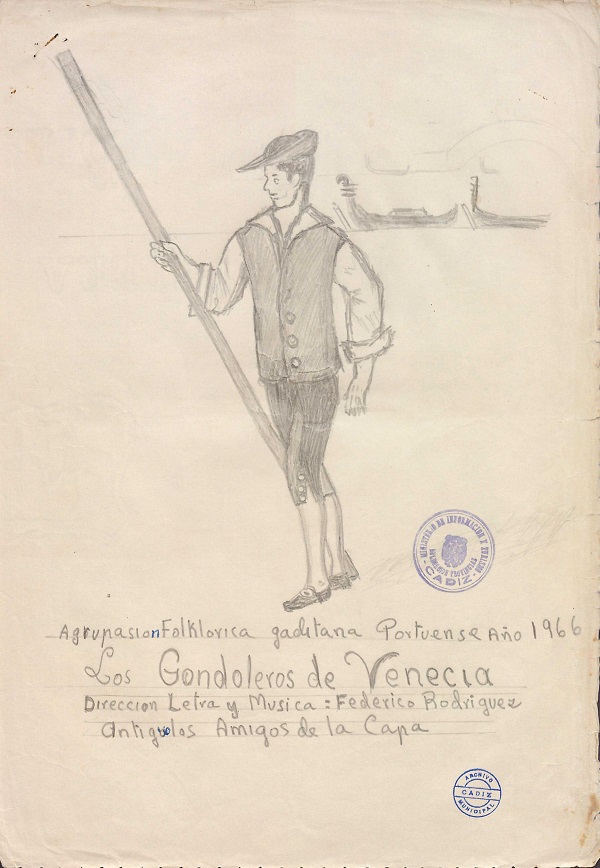 MINISTERIO DE INFORMACION Y TURISMO
DELEGACION PROVINCIAL
CADIZ
Agrupasion Folklorica gaditana Portuense Año 1966
Los Gondoleros de Venecia
Direccion Letra y Musica : Federico Rodriguez
Antiguos Amigos de la Capa
ARCHIVO
CADIZ
MUNICIPAL